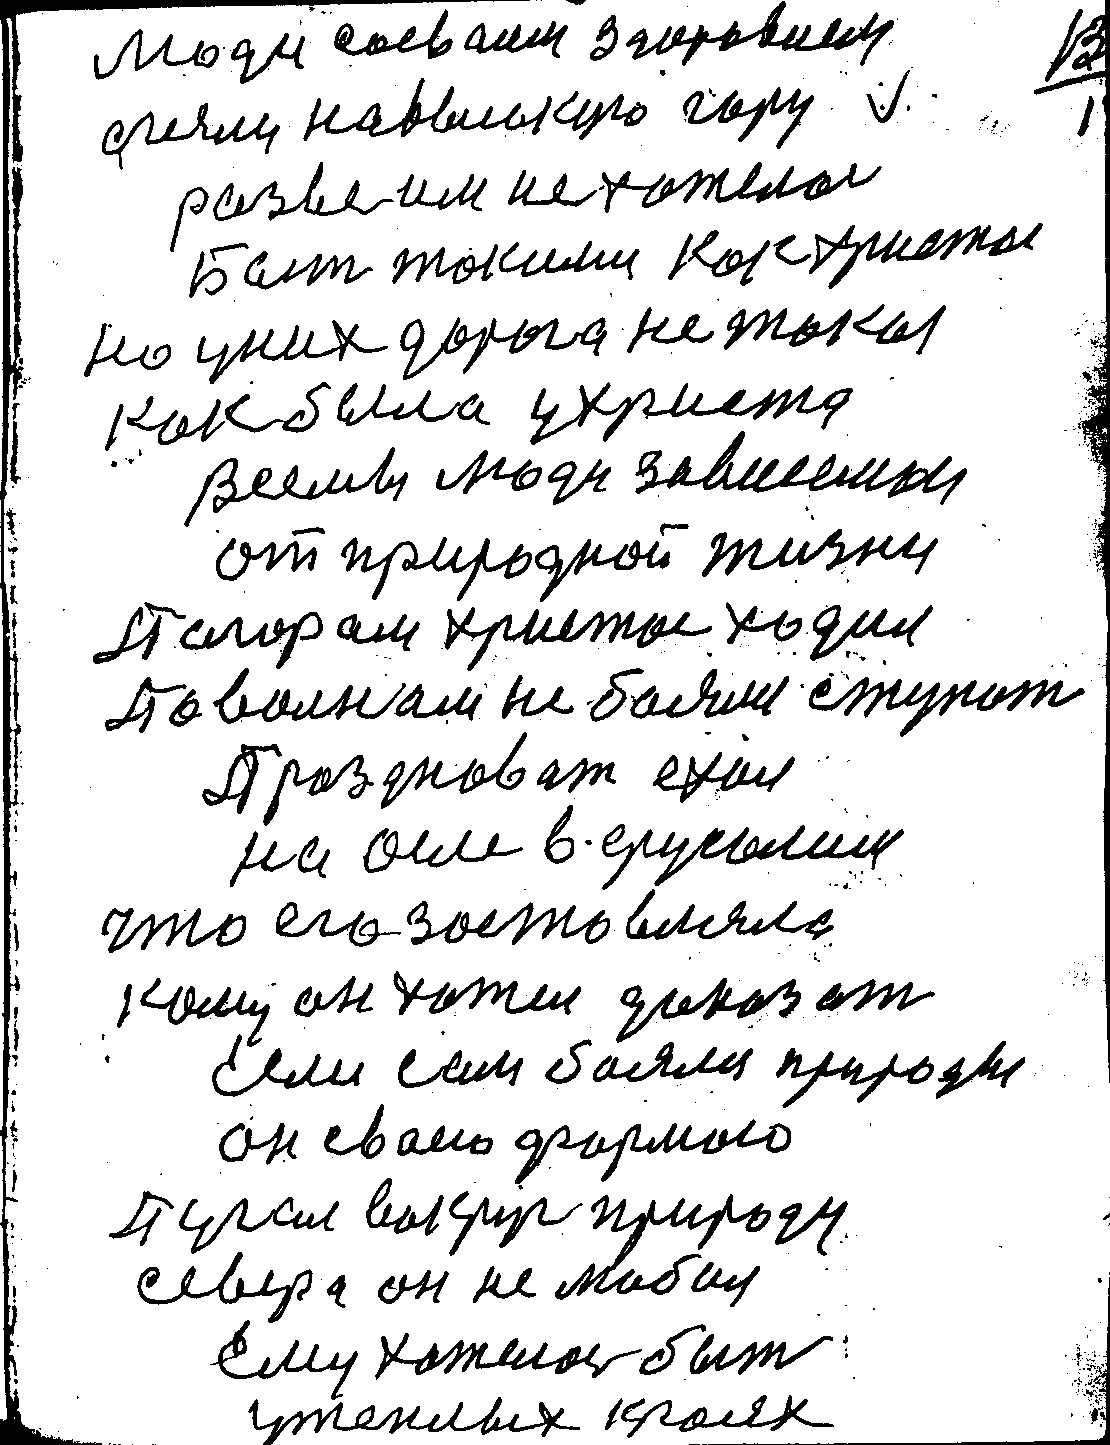 Люди сосваим здоровием
сяели наввысокую гору
развеим не хотелос
Быт токими Как христос
но уних дорога не токая
как была ухриста
всемы люди зависемыи
от природной жизни
Пагорам христос ходил
Паволнам не боялся ступат
Праздноват ехал
на осле в.ерусалим
что его заставляла
кому он хател доказат
Если сам боялся природы
он сваею формою
Пугал вокруг природу
севера он не любил
Ему хателос быт
утеплых кроях